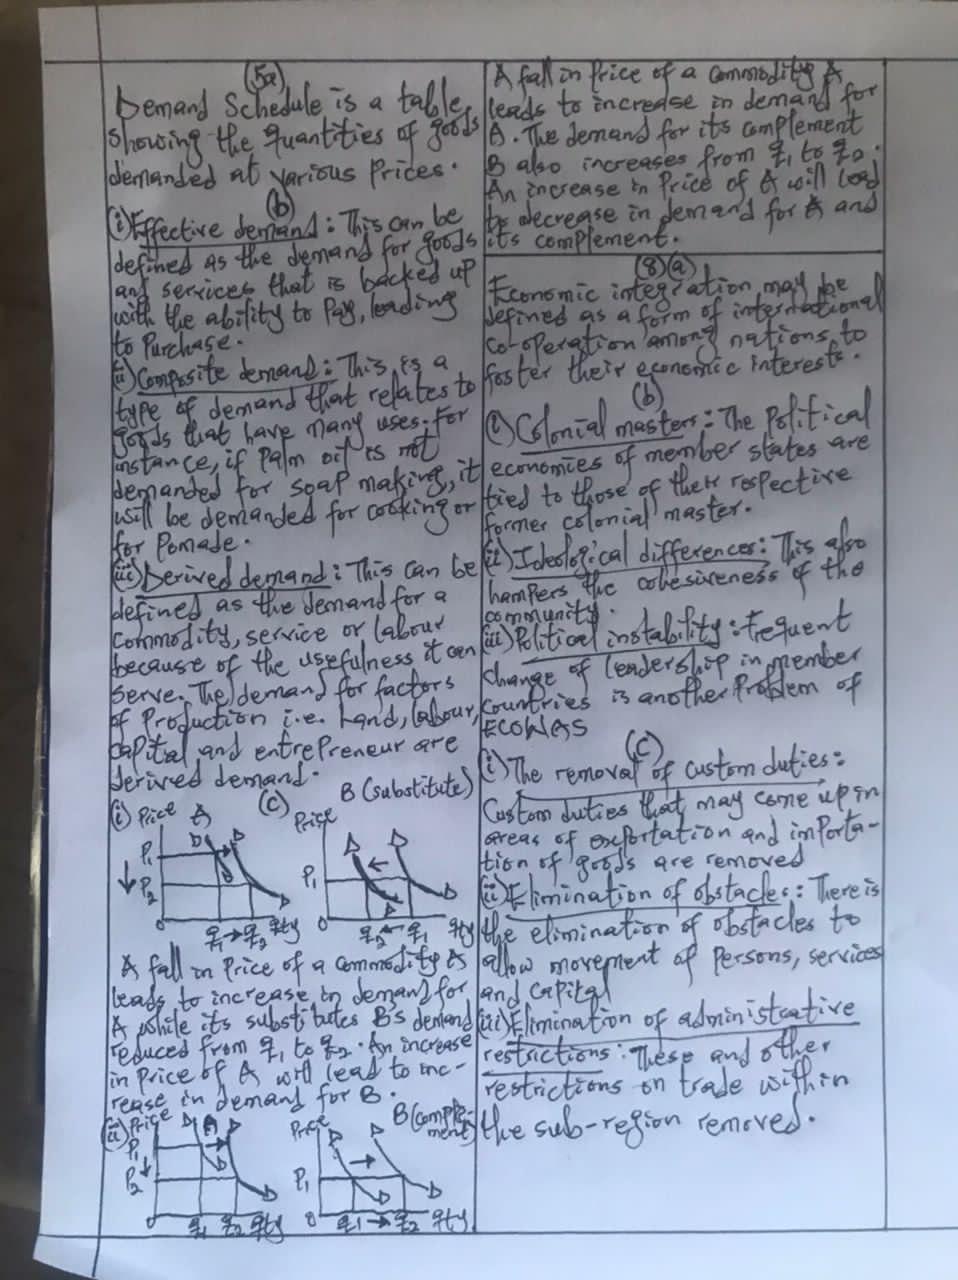 (5a)
Demand Schedule is a table
showing the quantities of goods
demanded at various Prices.
(b)
(i) Effective demand: This can be
defined as the demand for goods
and services that is backed up
with the ability to Pay, leading
to Purchase.
(ii) Composite demand: This is a
type of demand that relates to
goods that have many uses. for
instance, if Palm oil is not
demanded for soap making, it
will be demanded for cooking or
for Pomade.
(iii) Derived demand: This can be
defined as the demand for a
commodity, service or labour
because of the usefulness it can
serve. The demand for factors
of Production i.e. Land, labour,
capital and entrepreneur are
derived demand.
(c)
(i) Price A
B (substitute)
Price
D D
P1
P2
D D
0 q1→q2 qty
D D
P1
D D
0 q2←q1 qty
A fall in Price of a commodity A
leads to increase in demand for
A while its substitutes B's demand
reduced from q1 to q2. An increase
in Price of A will lead to inc-
rease in demand for B.
(ii) Price A
Price B (comple-
ment)
D D
P1
P2
D D
0 q1 q2 qty
D D
P1
D D
0 q1→q2 qty
A fall in Price of a commodity A
leads to increase in demand for
A. The demand for its complement
B also increases from q1 to q2.
An increase in Price of A will lead
to decrease in demand for A and
its complement.
(8)(a)
Economic integration may be
defined as a form of international
co-operation among nations to
foster their economic interests.
(b)
(i) Colonial masters: The Political
economies of member states are
tied to those of their respective
former colonial master.
(ii) Ideological differences: This also
hampers the cohesiveness of the
community.
(iii) Political instability: Frequent
change of leadership in member
countries is another Problem of
ECOWAS
(c)
(i) The removal of custom duties:
Custom duties that may come up in
areas of exportation and importa-
tion of goods are removed
(ii) Elimination of obstacles: There is
the elimination of obstacles to
allow movement of Persons, services
and capital
(iii) Elimination of administrative
restrictions: These and other
restrictions on trade within
the sub-region removed.